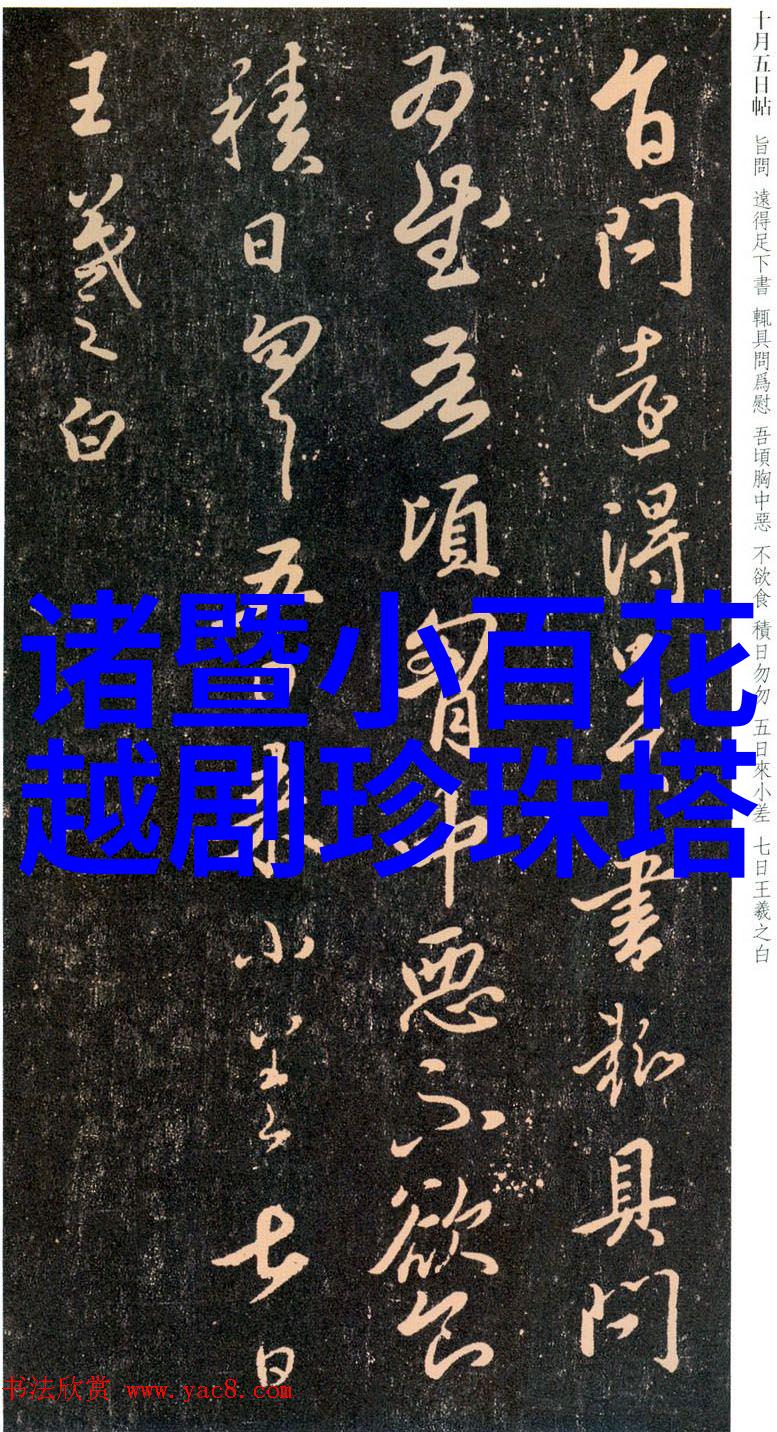 十月五日帖 旨問 遠得足下書 輒具問爲慰 吾頃胸中惡 不欲食 積日勿勿 五日來小差 七日王羲之白
旨問遠得足下書輒具問
爲慰吾頃胷中惡不欲食
積日勿勿五日來小差七日
王羲之白
诸暨小百花
越剧珍珠塔
书法欣赏 www.yac8.com